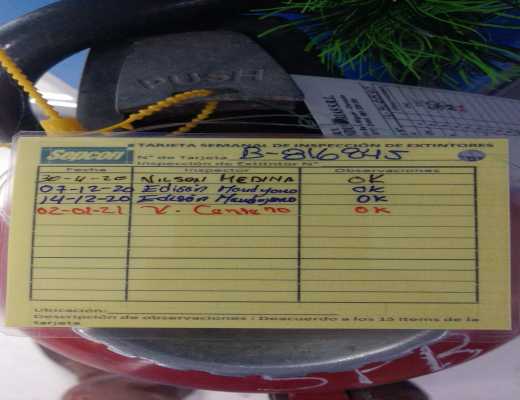 PUSH
TARJETA SEMANAL DE INSPECCIÓN DE EXTINTORES
Sepcon
N° de Tarjeta B-816845
Inspección de Extintor N°
Fecha Inspector Observaciones
30-4-20 NILSON MEDINA OK
07-12-20 Edison OK
14-12-20 Edison OK
02-01-21 V. Centeno OK
Ubicación:
Descripción de observaciones : Descuerdo a los 15 items de la
tarjeta